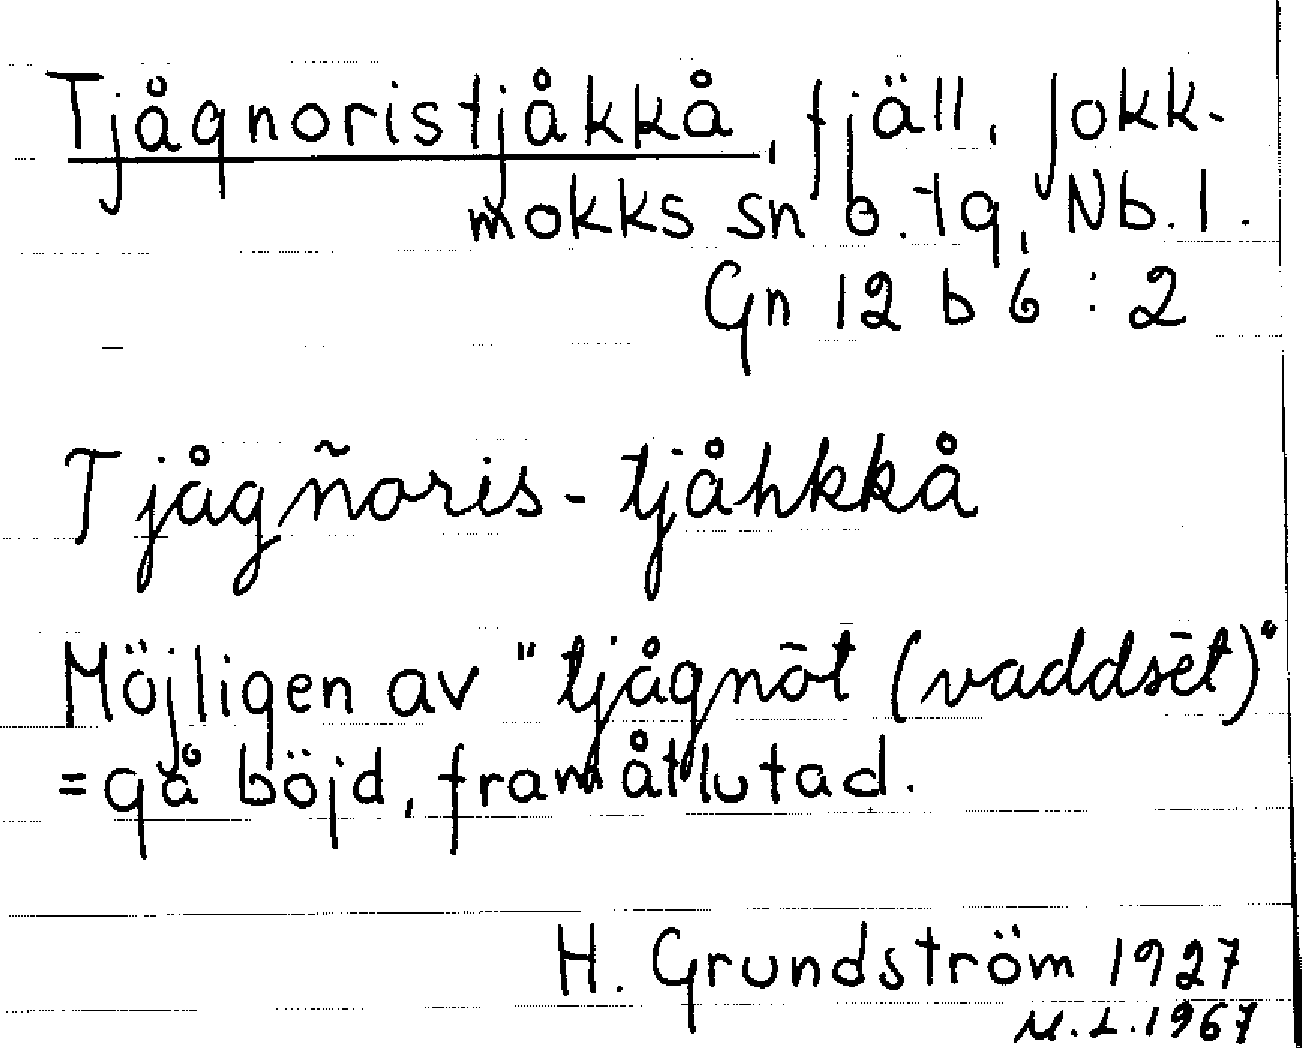 Tjågnoristjåkkå, fjäll, Jokk-
mokks sn o. tg, Nb. l.
Gn 12 b 6 : 2
Tjågñoris-tjåhkkå
Möjligen av "tjågnōt (vaddsēt)"
= gå böjd, framåtlutad.
H. Grundström 1927
M.L.1967